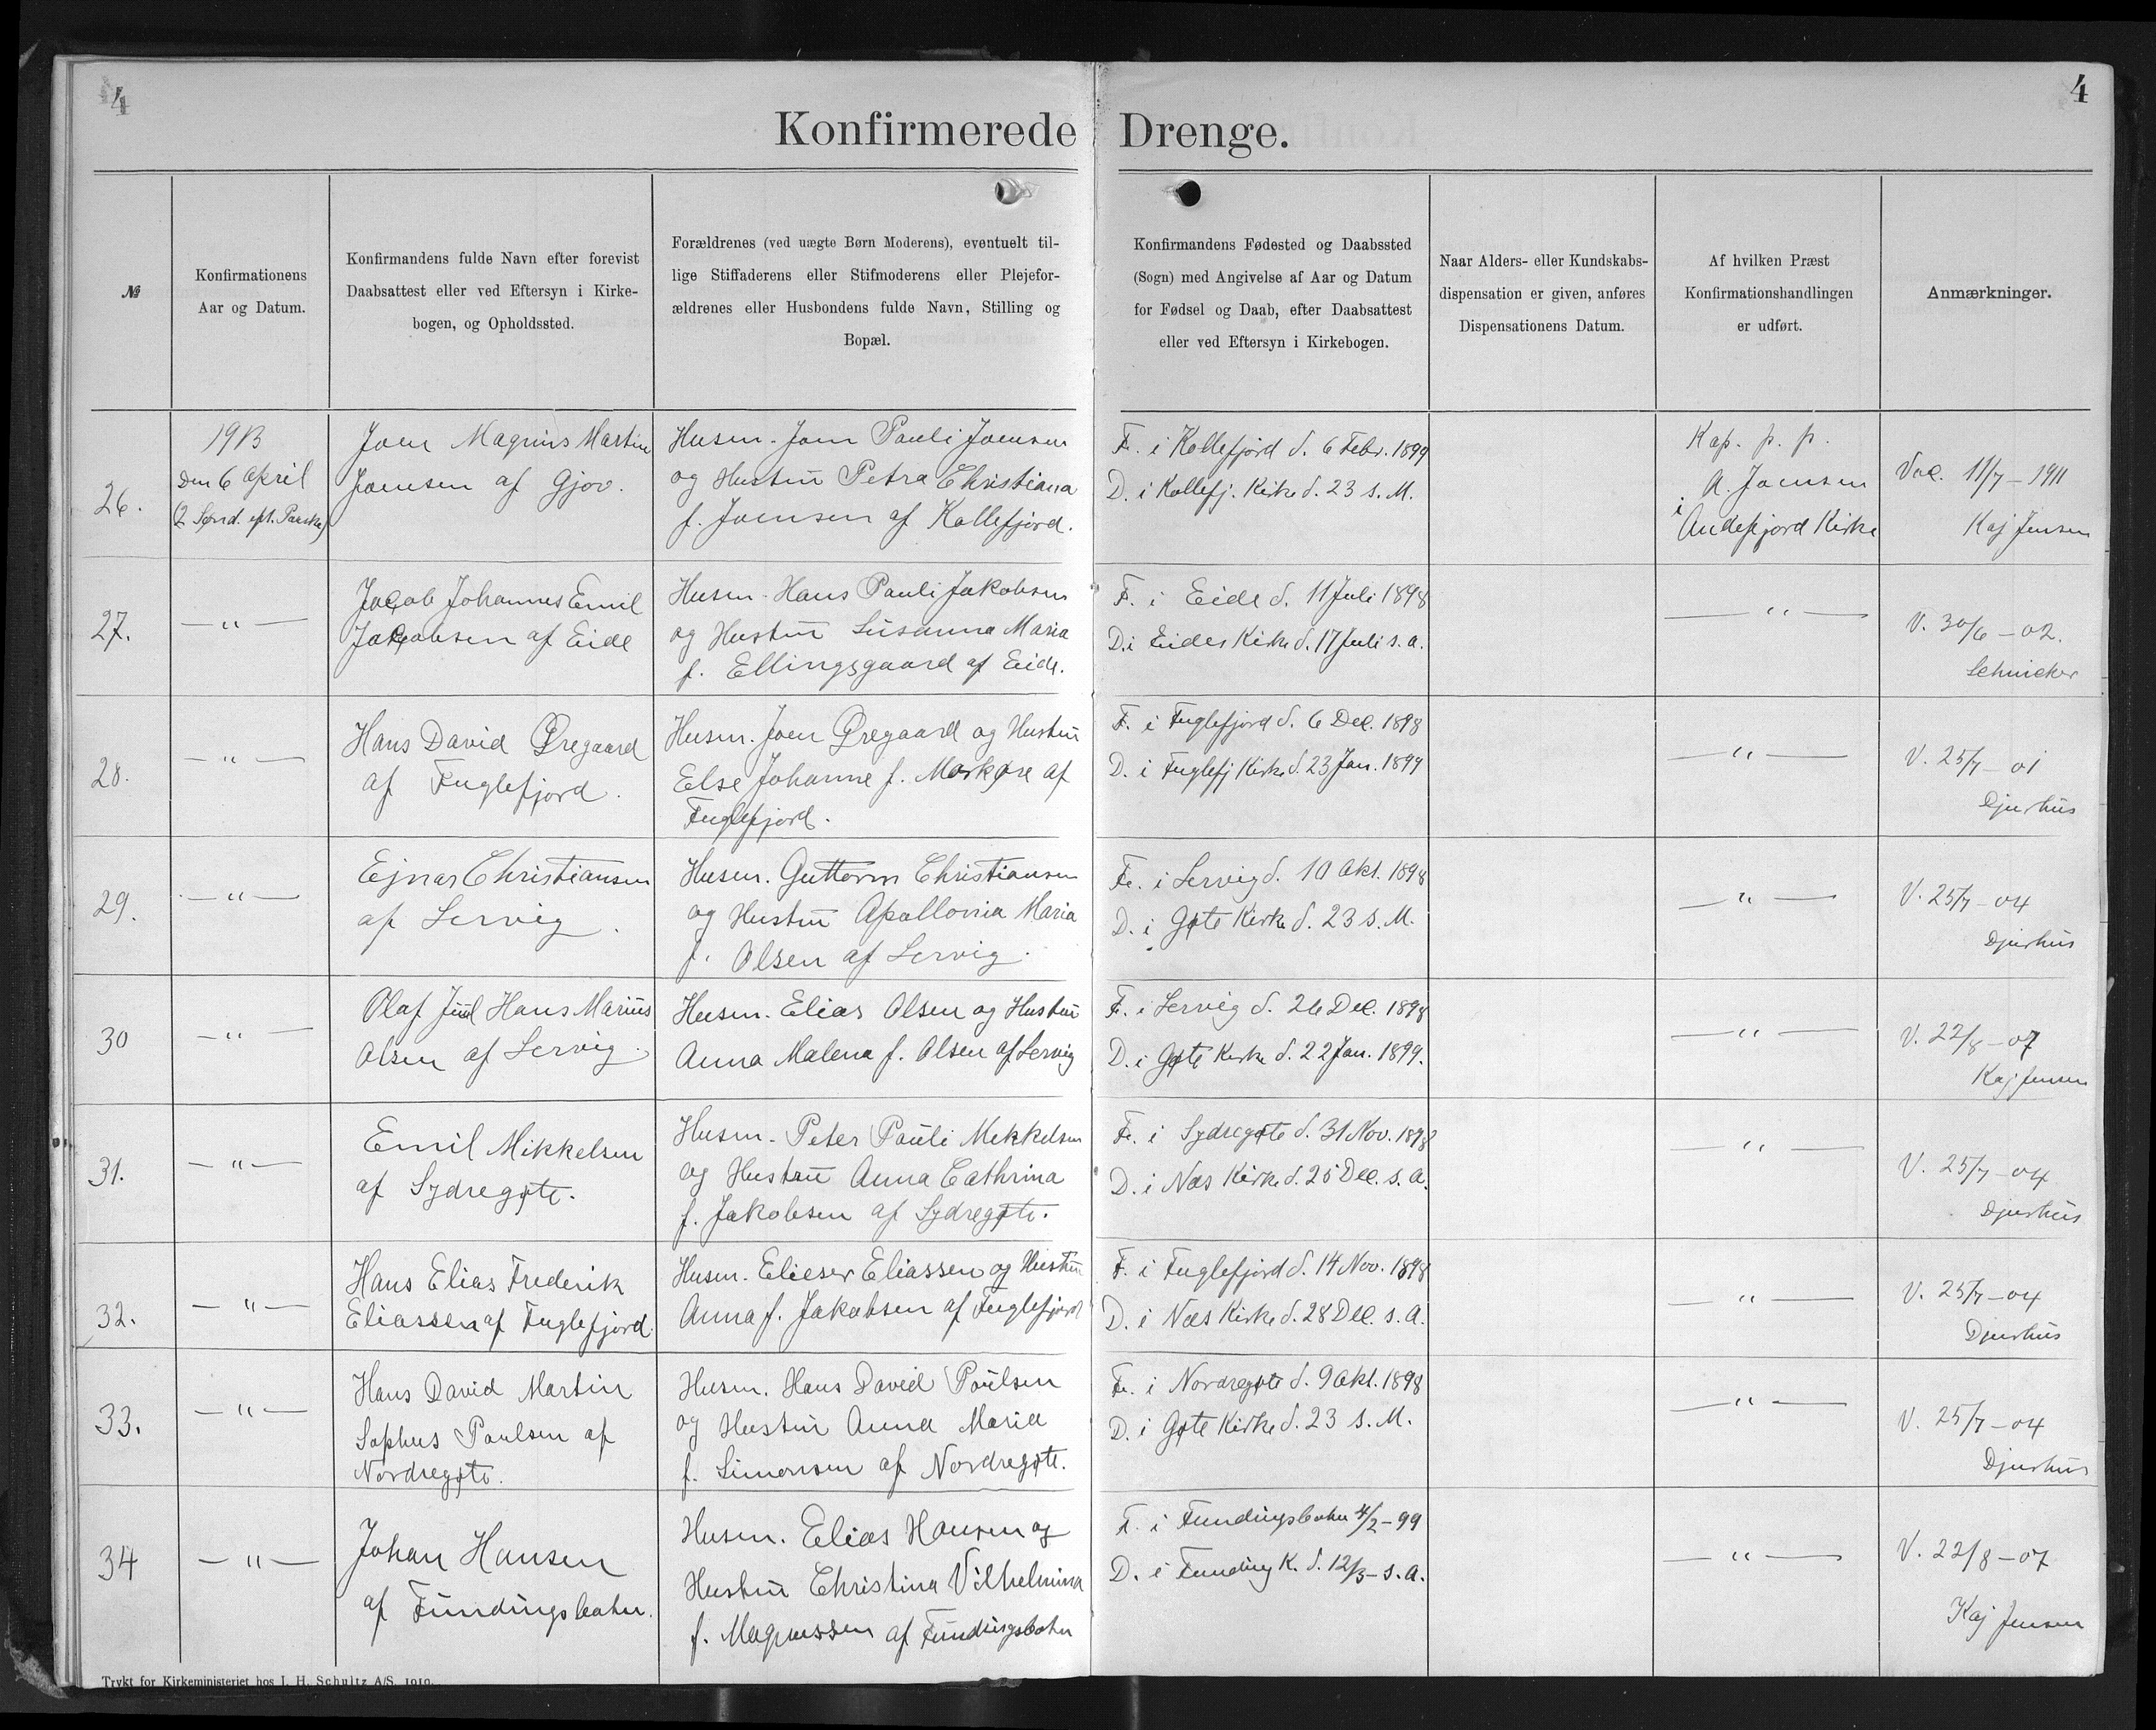 4
4
Konfirmerede Drenge.
№
Konfirmationens
Aar og Datum.
Konfirmandens fulde Navn efter forevist
Daabsattest eller ved Eftersyn i Kirke-
bogen, og Opholdssted.
Forældrenes (ved uægte Børn Moderens), eventuelt til-
lige Stiffaderens eller Stifmoderens eller Plejefor-
ældrenes eller Husbondens fulde Navn, Stilling og
Bopæl.
Konfirmandens Fødested og Daabssted
(Sogn) med Angivelse af Aar og Datum
for Fødsel og Daab, efter Daabsattest
eller ved Eftersyn i Kirkebogen.
Naar Alders- eller Kundskabs-
dispensation er given, anføres
Dispensationens Datum.
Af hvilken Præst
Konfirmationshandlingen
er udført.
Anmærkninger.
26.
1913
den 6 April
(2 Sønd. eft. Paaske)
Joen Magnus Martin
Joensen af Gjov.
Husm. Joen Pauli Joensen
og Hustru Petra Christiana
f. Joensen af Kollefjord.
F. i Kollefjord d. 6 Febr. 1899
D. i Kollefj. Kirke d. 23 s. M.
Kap. p. p.
A. Joensen
i
Andefjord Kirke
Vac. 11/7 - 1911
Kaj Jensen
27.
— " —
Jacob Johannes Emil
Jakobsen af Eide
Husm. Hans Pauli Jakobsen
og Hustru Susanna Maria
f. Ellingsgaard af Eide.
F. i Eide d. 11 Juli 1898
D. i Eides Kirke d. 17 Juli s. a.
— " —
V. 30/6 - 02.
28.
— " —
Hans David Øregaard
af Fuglefjord.
Husm. Joen Øregaard og Hustru
Else Johanne f. Morkøre af
Fuglefjord.
F. i Fuglefjord d. 6 Dec. 1898
D. i Fuglefj Kirke d. 23 Jan. 1899
— " —
V. 25/7 - 01
Djurhus
29.
— " —
Ejnar Christiansen
af Lervig.
Husm. Guttorm Christiansen
og Hustru Apollonia Maria
f. Olsen af Lervig.
F. i Lervig d. 10 Okt. 1898
D. i Gøte Kirke d. 23 s. M.
— " —
V. 25/7 - 04
Djurhus
30
— " —
Olaf Juul Hans Marius
Olsen af Lervig.
Husm. Elias Olsen og Hustru
Anna Malena f. Olsen af Lervig
F. i Lervig d. 26 Dec. 1898
D. i Gøte Kirke d. 22 Jan. 1899.
— " —
V. 22/8 - 07
Kaj Jensen
31.
— " —
Emil Mikkelsen
af Sydregøte.
Husm. Peter Pauli Mikkelsen
og Hustru Anna Cathrina
f. Jakobsen af Sydregøte.
F. i Sydregøte d. 31 Nov. 1898
D. i Næs Kirke d. 25 Dec. s. a.
— " —
V. 25/7 - 04
Djurhus
32.
— " —
Hans Elias Frederik
Eliassen af Fuglefjord.
Husm. Elieser Eliassen og Hustru
Anna f. Jakobsen af Fuglefjord
F. i Fuglefjord d. 14 Nov. 1898
D. i Næs Kirke d. 28 Dec. s. a.
— " —
V. 25/7 - 04
Djurhus
33.
— " —
Hans David Martin
Sophus Poulsen af
Nordregøte.
Husm. Hans David Poulsen
og Hustru Anna Maria
f. Simonsen af Nordregøte.
F. i Nordregøte d. 9 Okt. 1898
D. i Gøte Kirke d. 23 s. M.
— " —
V. 25/7 - 04
Djurhus
34
— " —
Johan Hansen
af Fundingsbotn.
Husm. Elias Hansen og
Hustru Christina Vilhelmina
f. Magnussen af Fundingsbotn
F. i Fundingsbotn 4/2 - 99
D. i Funding K. d. 12/3 - s. a.
— " —
V. 22/8 - 07
Kaj Jensen
Trykt for Kirkeministeriet hos J. H. Schultz A/S. 1910.